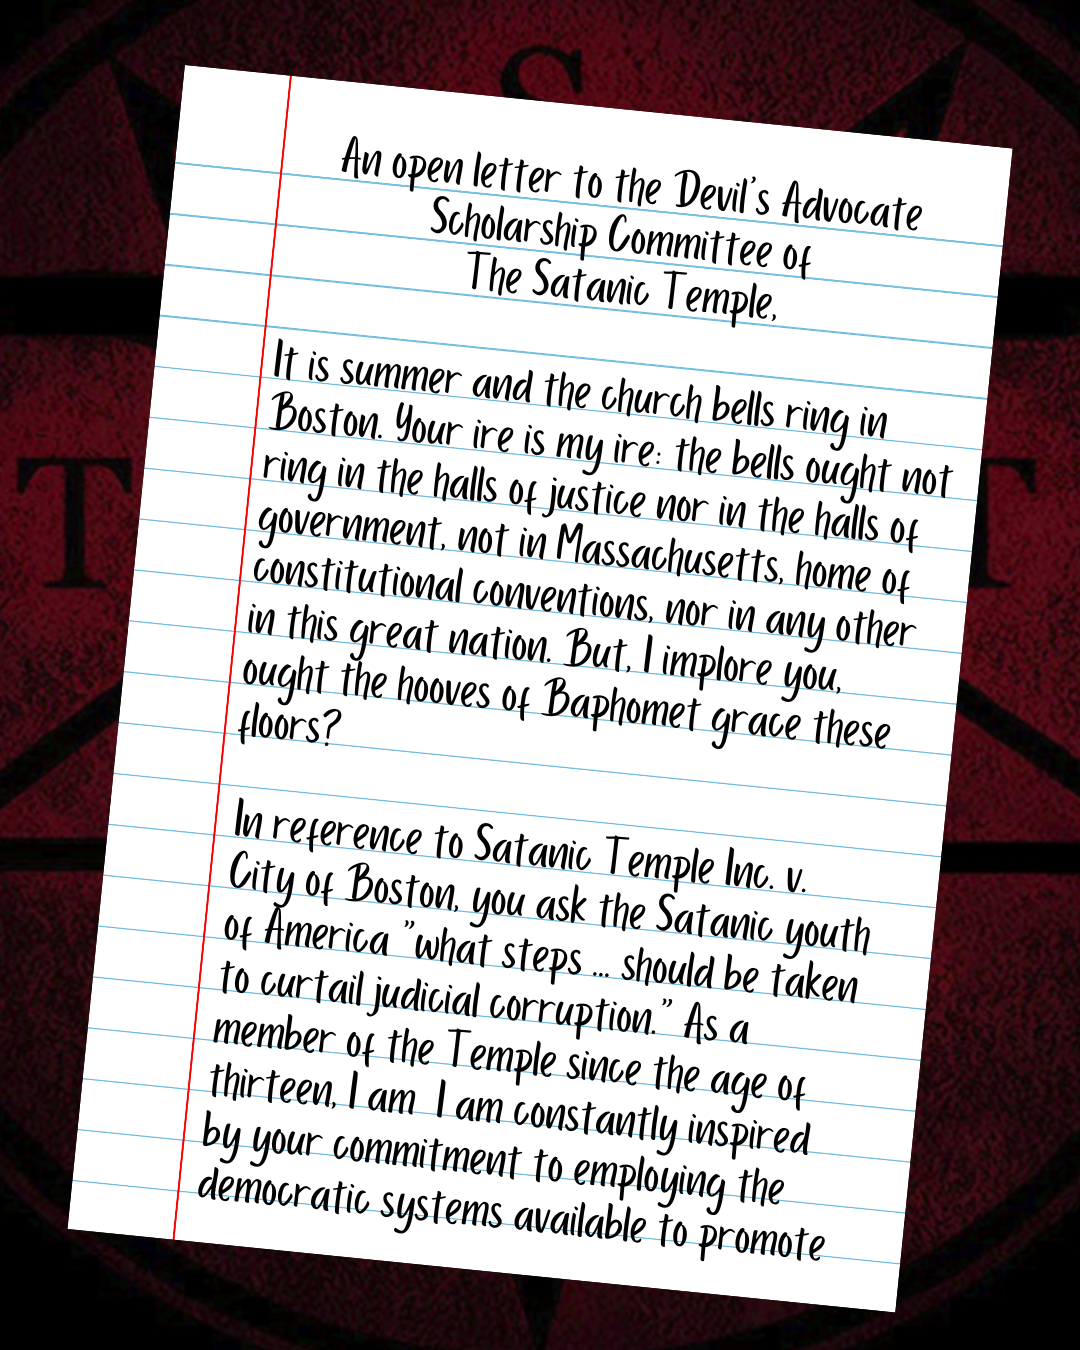 S
T
T
An open letter to the Devil's Advocate
Scholarship Committee of
The Satanic Temple,
It is summer and the church bells ring in
Boston. Your ire is my ire: the bells ought not
ring in the halls of justice nor in the halls of
government, not in Massachusetts, home of
constitutional conventions, nor in any other
in this great nation. But, I implore you,
ought the hooves of Baphomet grace these
floors?
In reference to Satanic Temple Inc. v.
City of Boston, you ask the Satanic youth
of America "what steps ... should be taken
to curtail judicial corruption." As a
member of the Temple since the age of
thirteen, I am  I am constantly inspired
by your commitment to employing the
democratic systems available to promote